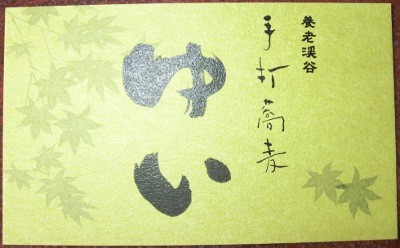 養老渓谷
手打蕎麦
ゆい